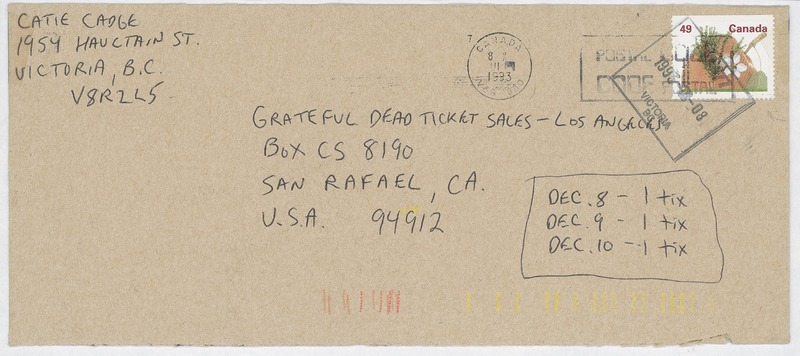 CATIE CADGE
1954 HAULTAIN ST.
VICTORIA, B.C.
V8R2L5
7
CANADA
8
1993
POSTAL
CODE POSTAL
49 Canada
1993
08
VICTORIA
GRATEFUL DEAD TICKET SALES - LOS ANGELES
BOX CS 8190
SAN RAFAEL, CA.
U.S.A. 94912
DEC. 8 - 1 tix
DEC. 9 - 1 tix
DEC. 10 - 1 tix